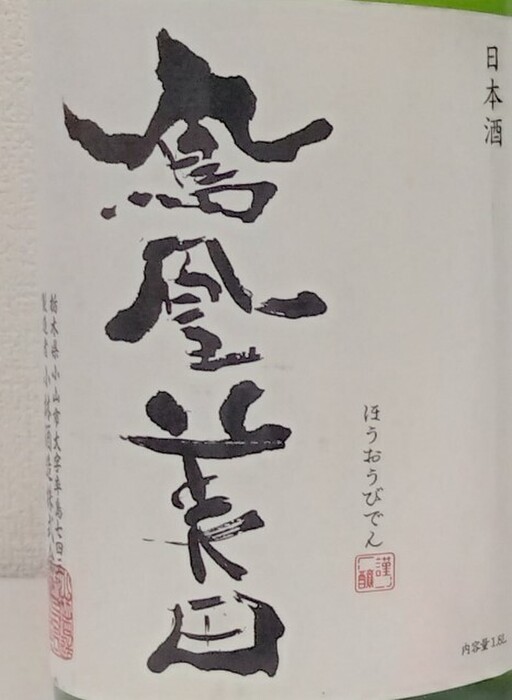 日本酒
鳳凰美田
ほうおうびでん
謹醸
内容量1.8L
栃木県小山市大字卒島七四三
製造者 小林酒造株式会